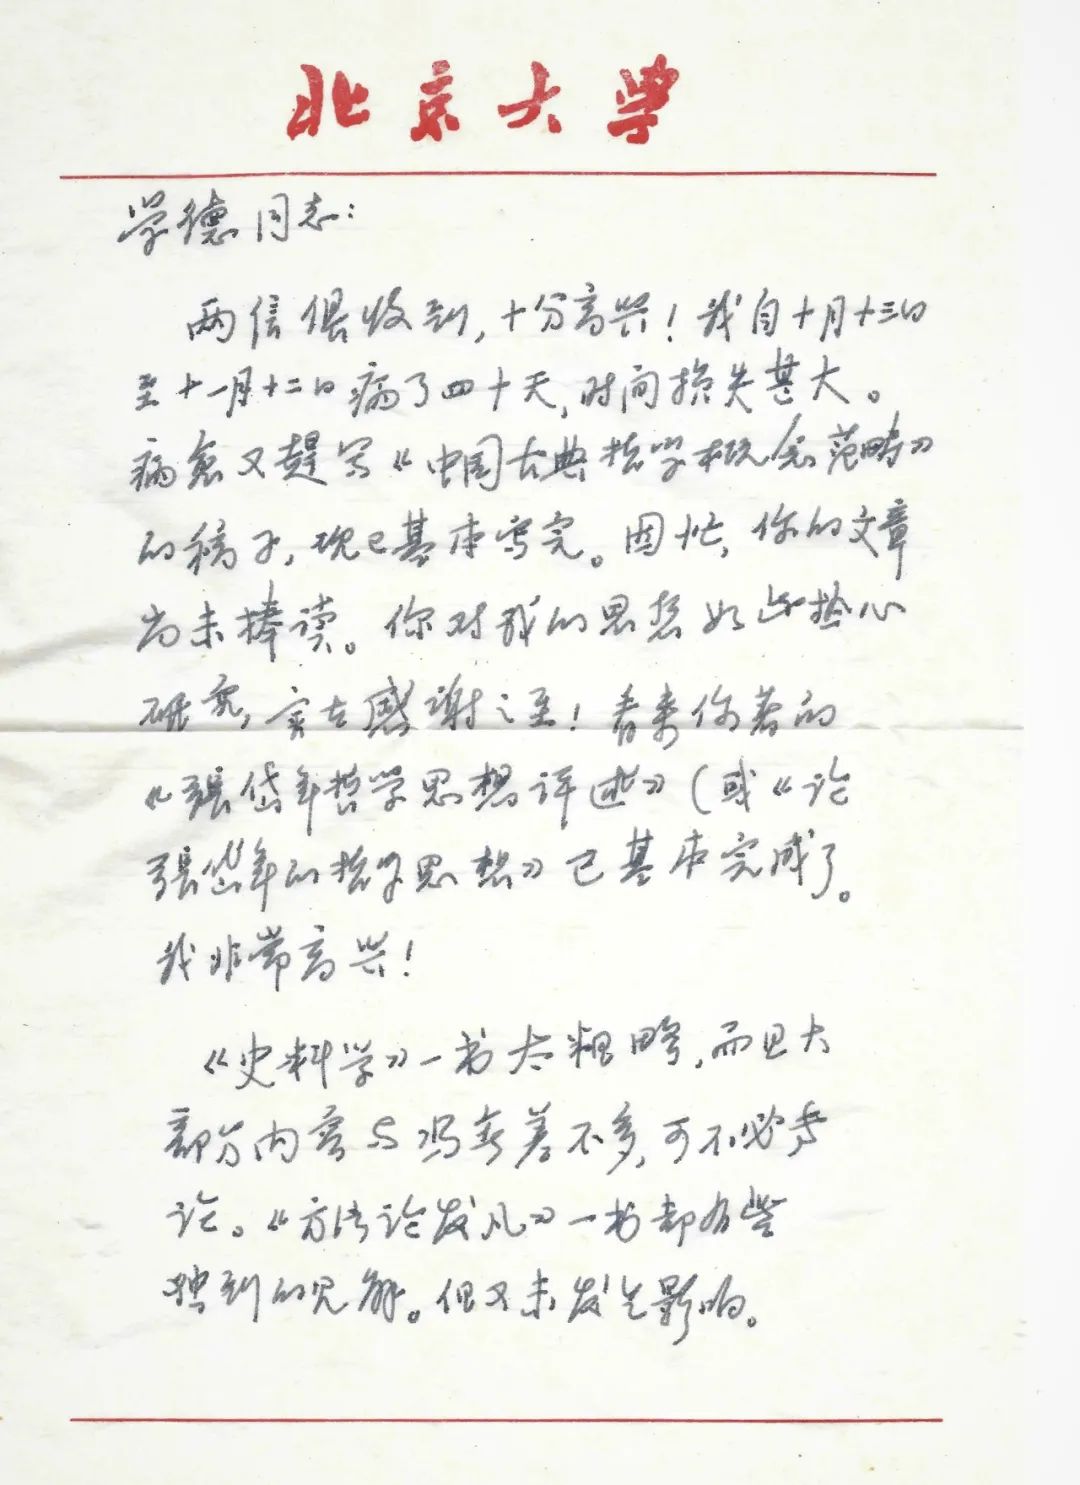 北京大学
学德同志：
两信俱收到，十分高兴！我自十月十三日
至十一月十二日病了四十天，时间损失甚大。
病愈又赶写《中国古典哲学概念范畴》
的稿子，现已基本写完。因忙，你的文章
尚未捧读。你对我的思想如此
研究，实在感谢之至！看来你著的
《张岱年哲学思想评述》（或《论
张岱年的哲学思想》已基本完成了。
我非常高兴！
《史料学》一书太粗略，而且大
部分内容与冯差不多，可不必专
论。《方法论发凡》一书却有些
独到的见解。但又未发生影响。